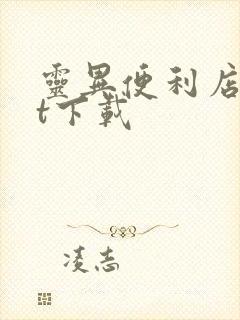 靈異便利店
t下載
凌志